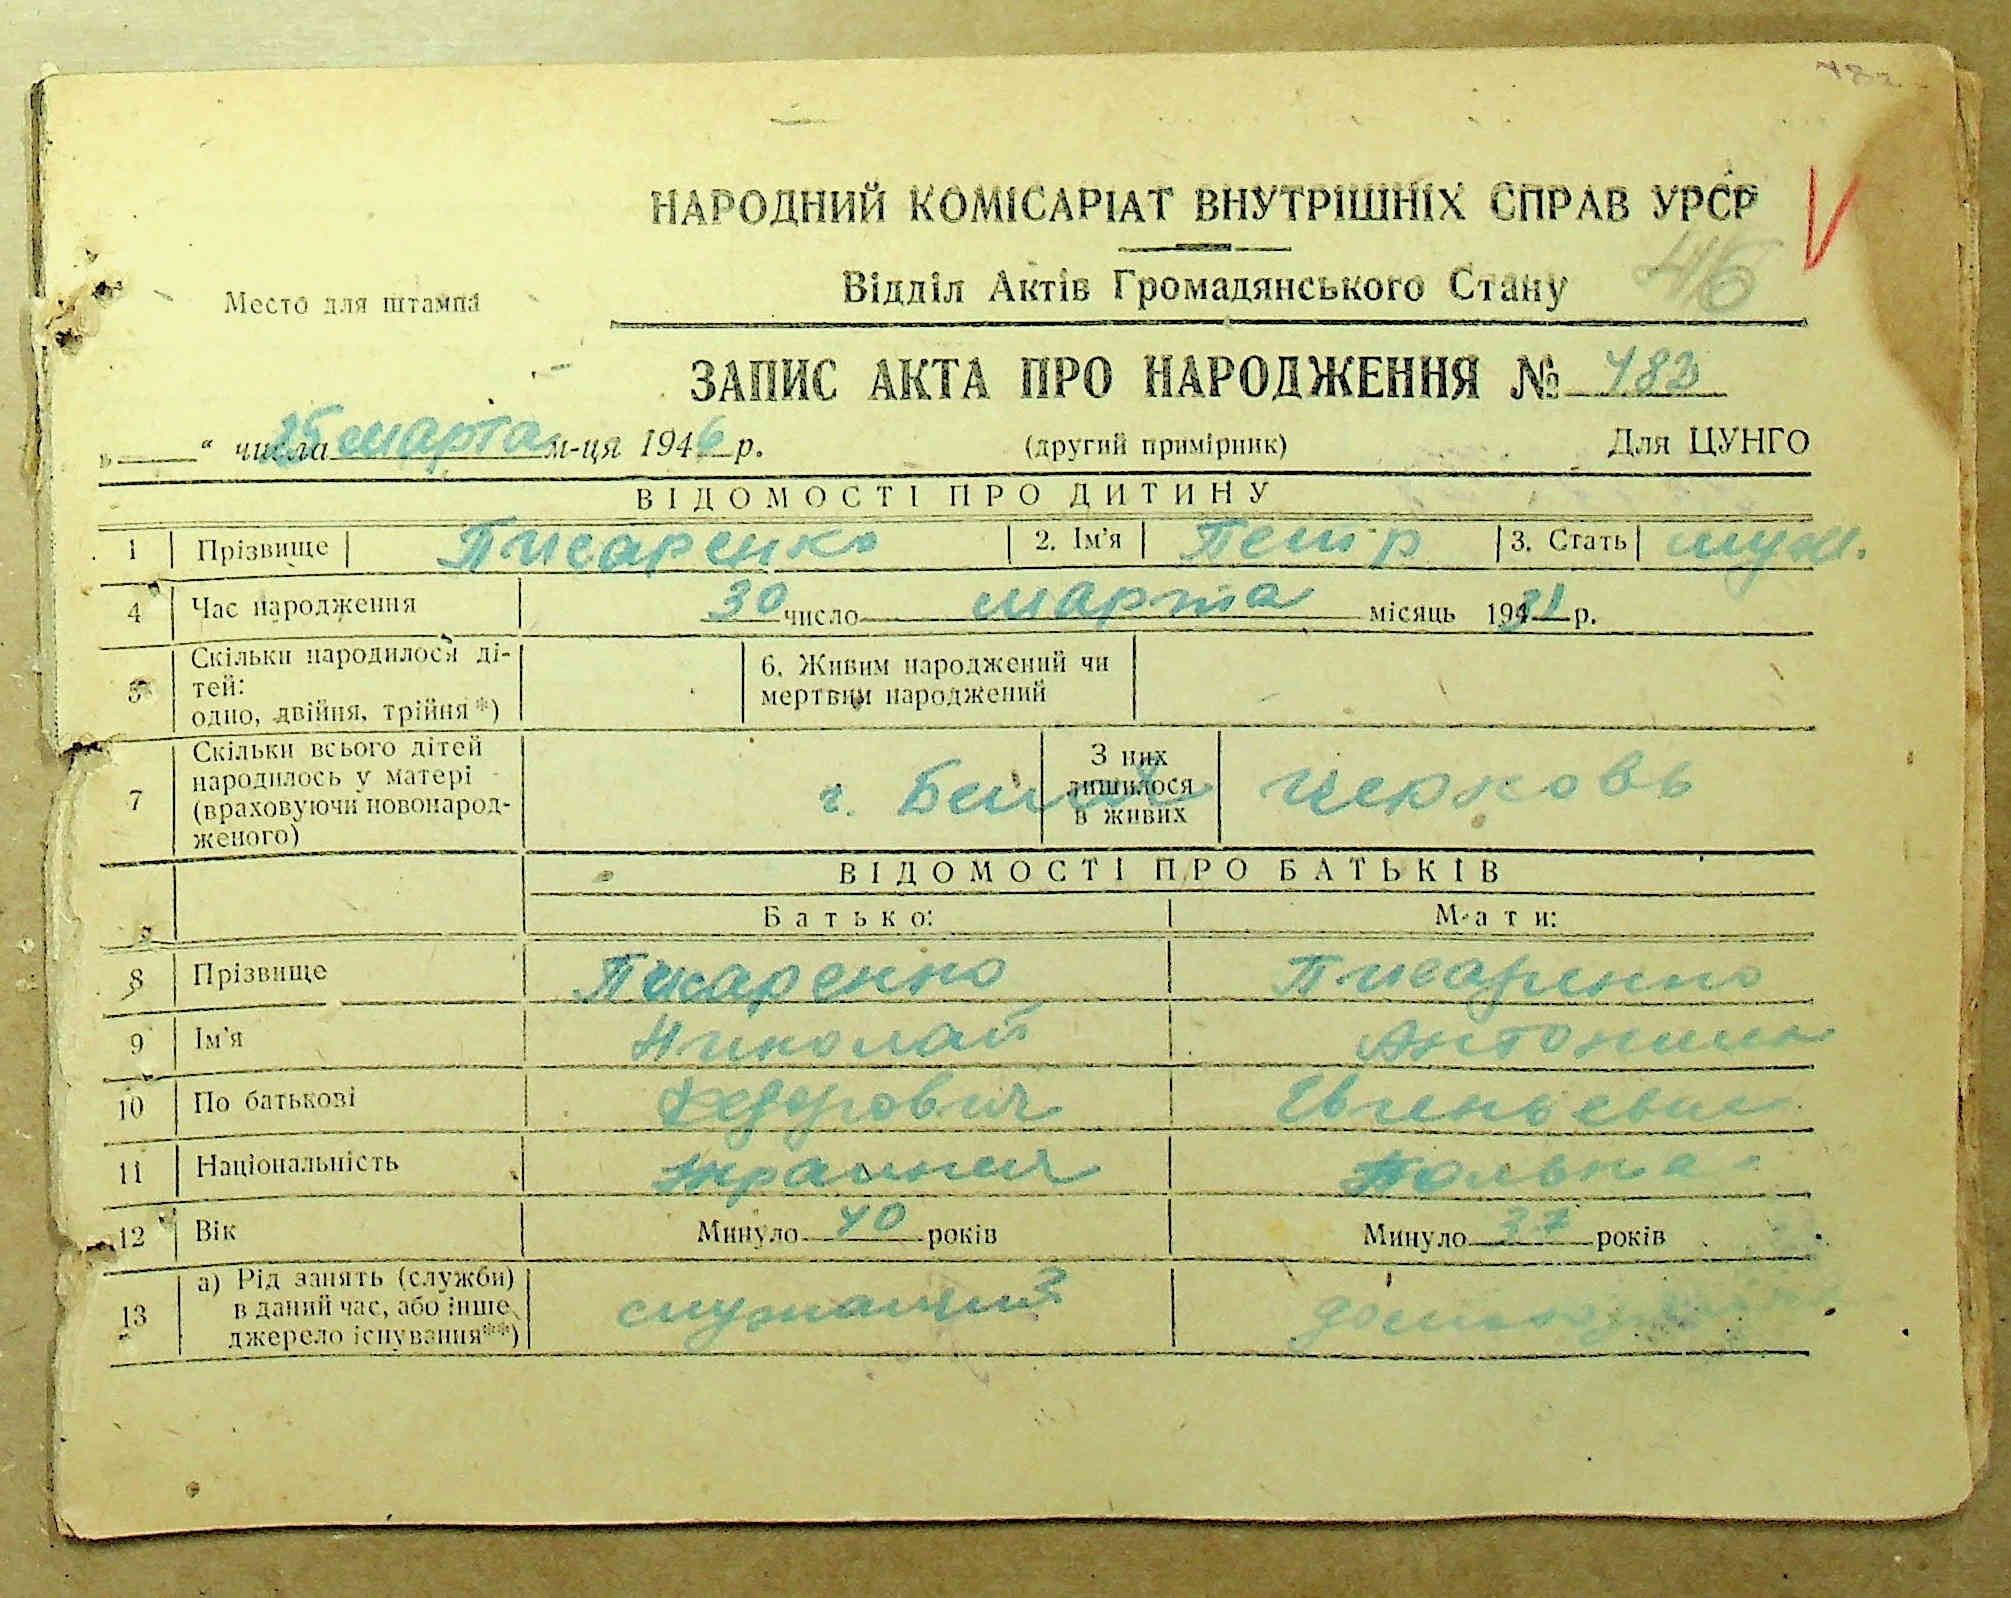 НАРОДНИЙ КОМІСАРІАТ ВНУТРІШНІХ СПРАВ УРСР
416
Место для штампа
Відділ Актів Громадянського Стану
ЗАПИС АКТА ПРО НАРОДЖЕННЯ № 483
„ “ числа 25 марта м-ця 1946 р. (другий примірник) Для ЦУНГО
ВІДОМОСТІ ПРО ДИТИНУ
1 Прізвище Писаренко 2. Ім'я Петр 3. Стать муж.
4 Час народження 30 число марта місяць 1931 р.
5 Скільки народилося ді-
тей:
одно, двійня, трійня*)
6. Живим народжений чи
мертвим народжений
7 Скільки всього дітей
народилось у матері
(враховуючи новонарод-
женого)
г. Белая Церковь
З них
лишилося
в живих
ВІДОМОСТІ ПРО БАТЬКІВ
Батько: Мати:
8 Прізвище Писаренко Писаренко
9 Ім'я Николай Антонина
10 По батькові Федорович Евгеньевна
11 Національність украинец Полька
12 Вік Минуло 40 років Минуло 37 років
13 а) Рід занять (служби)
в даний час, або інше
джерело існування**)
служащий